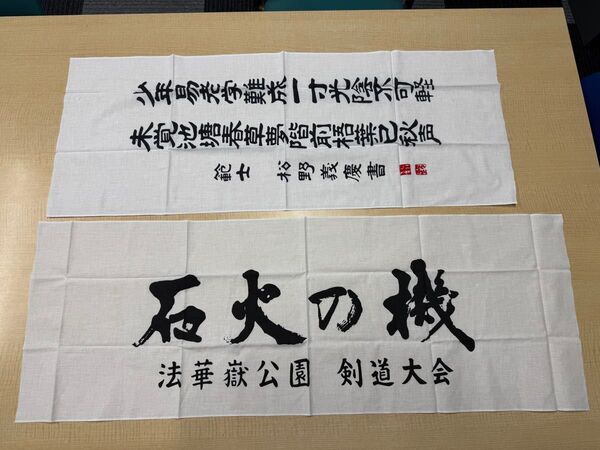 少年易老学難成一寸光陰不可軽
未覚池塘春草夢階前梧葉已秋声
範士 松野義慶書
石火の機
法華嶽公園 剣道大会